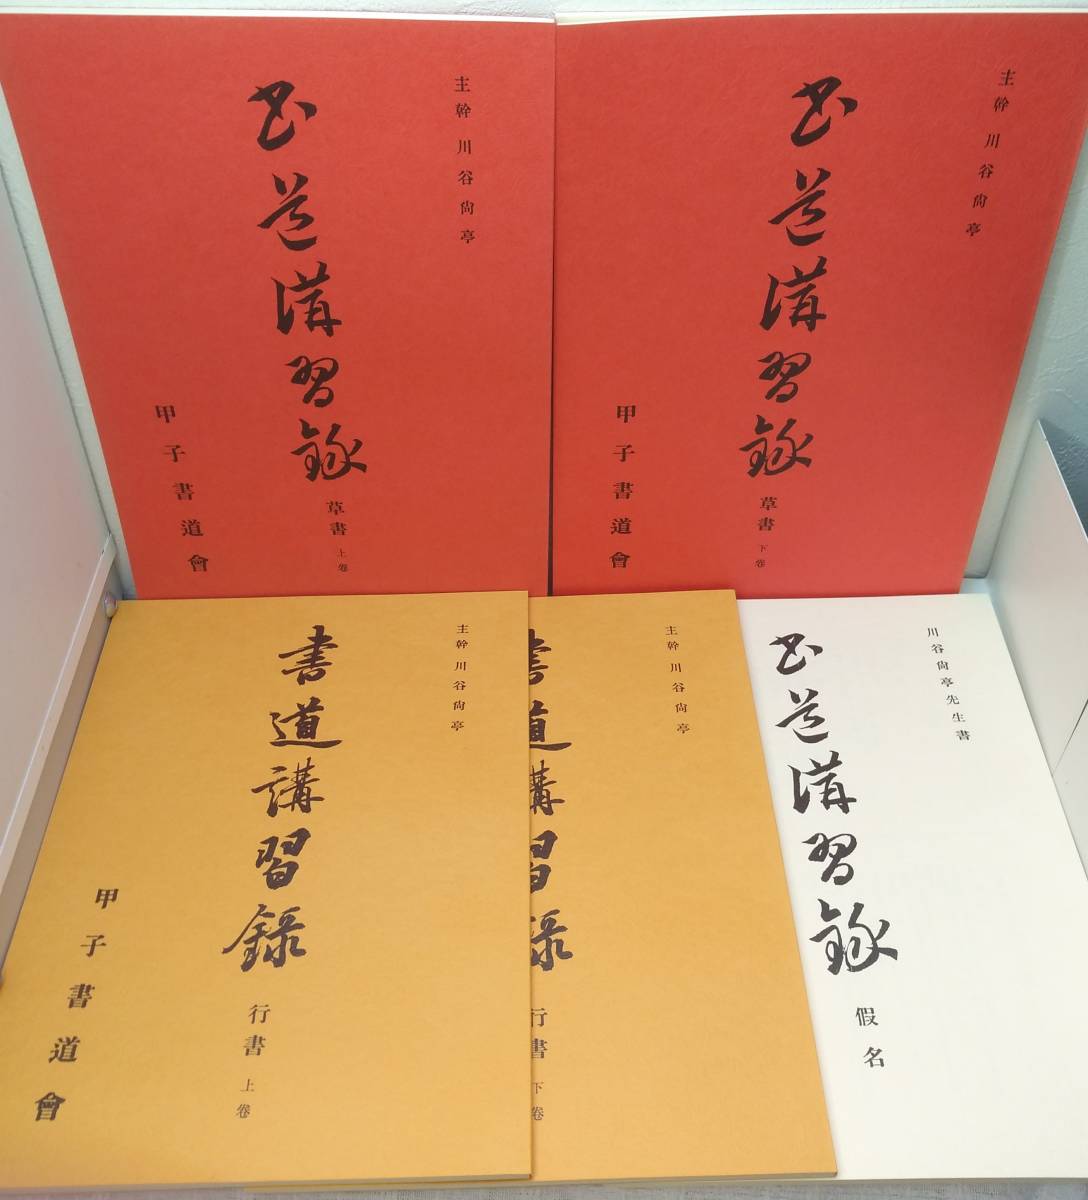 主幹 川谷尙亭
書道講習錄
草書 上卷
甲子書道會
主幹 川谷尙亭
書道講習錄
草書 下卷
甲子書道會
主幹 川谷尙亭
書道講習錄
行書 上卷
甲子書道會
主幹 川谷尙亭
書道講習錄
行書 下卷
川谷尙亭先生書
書道講習錄
假名